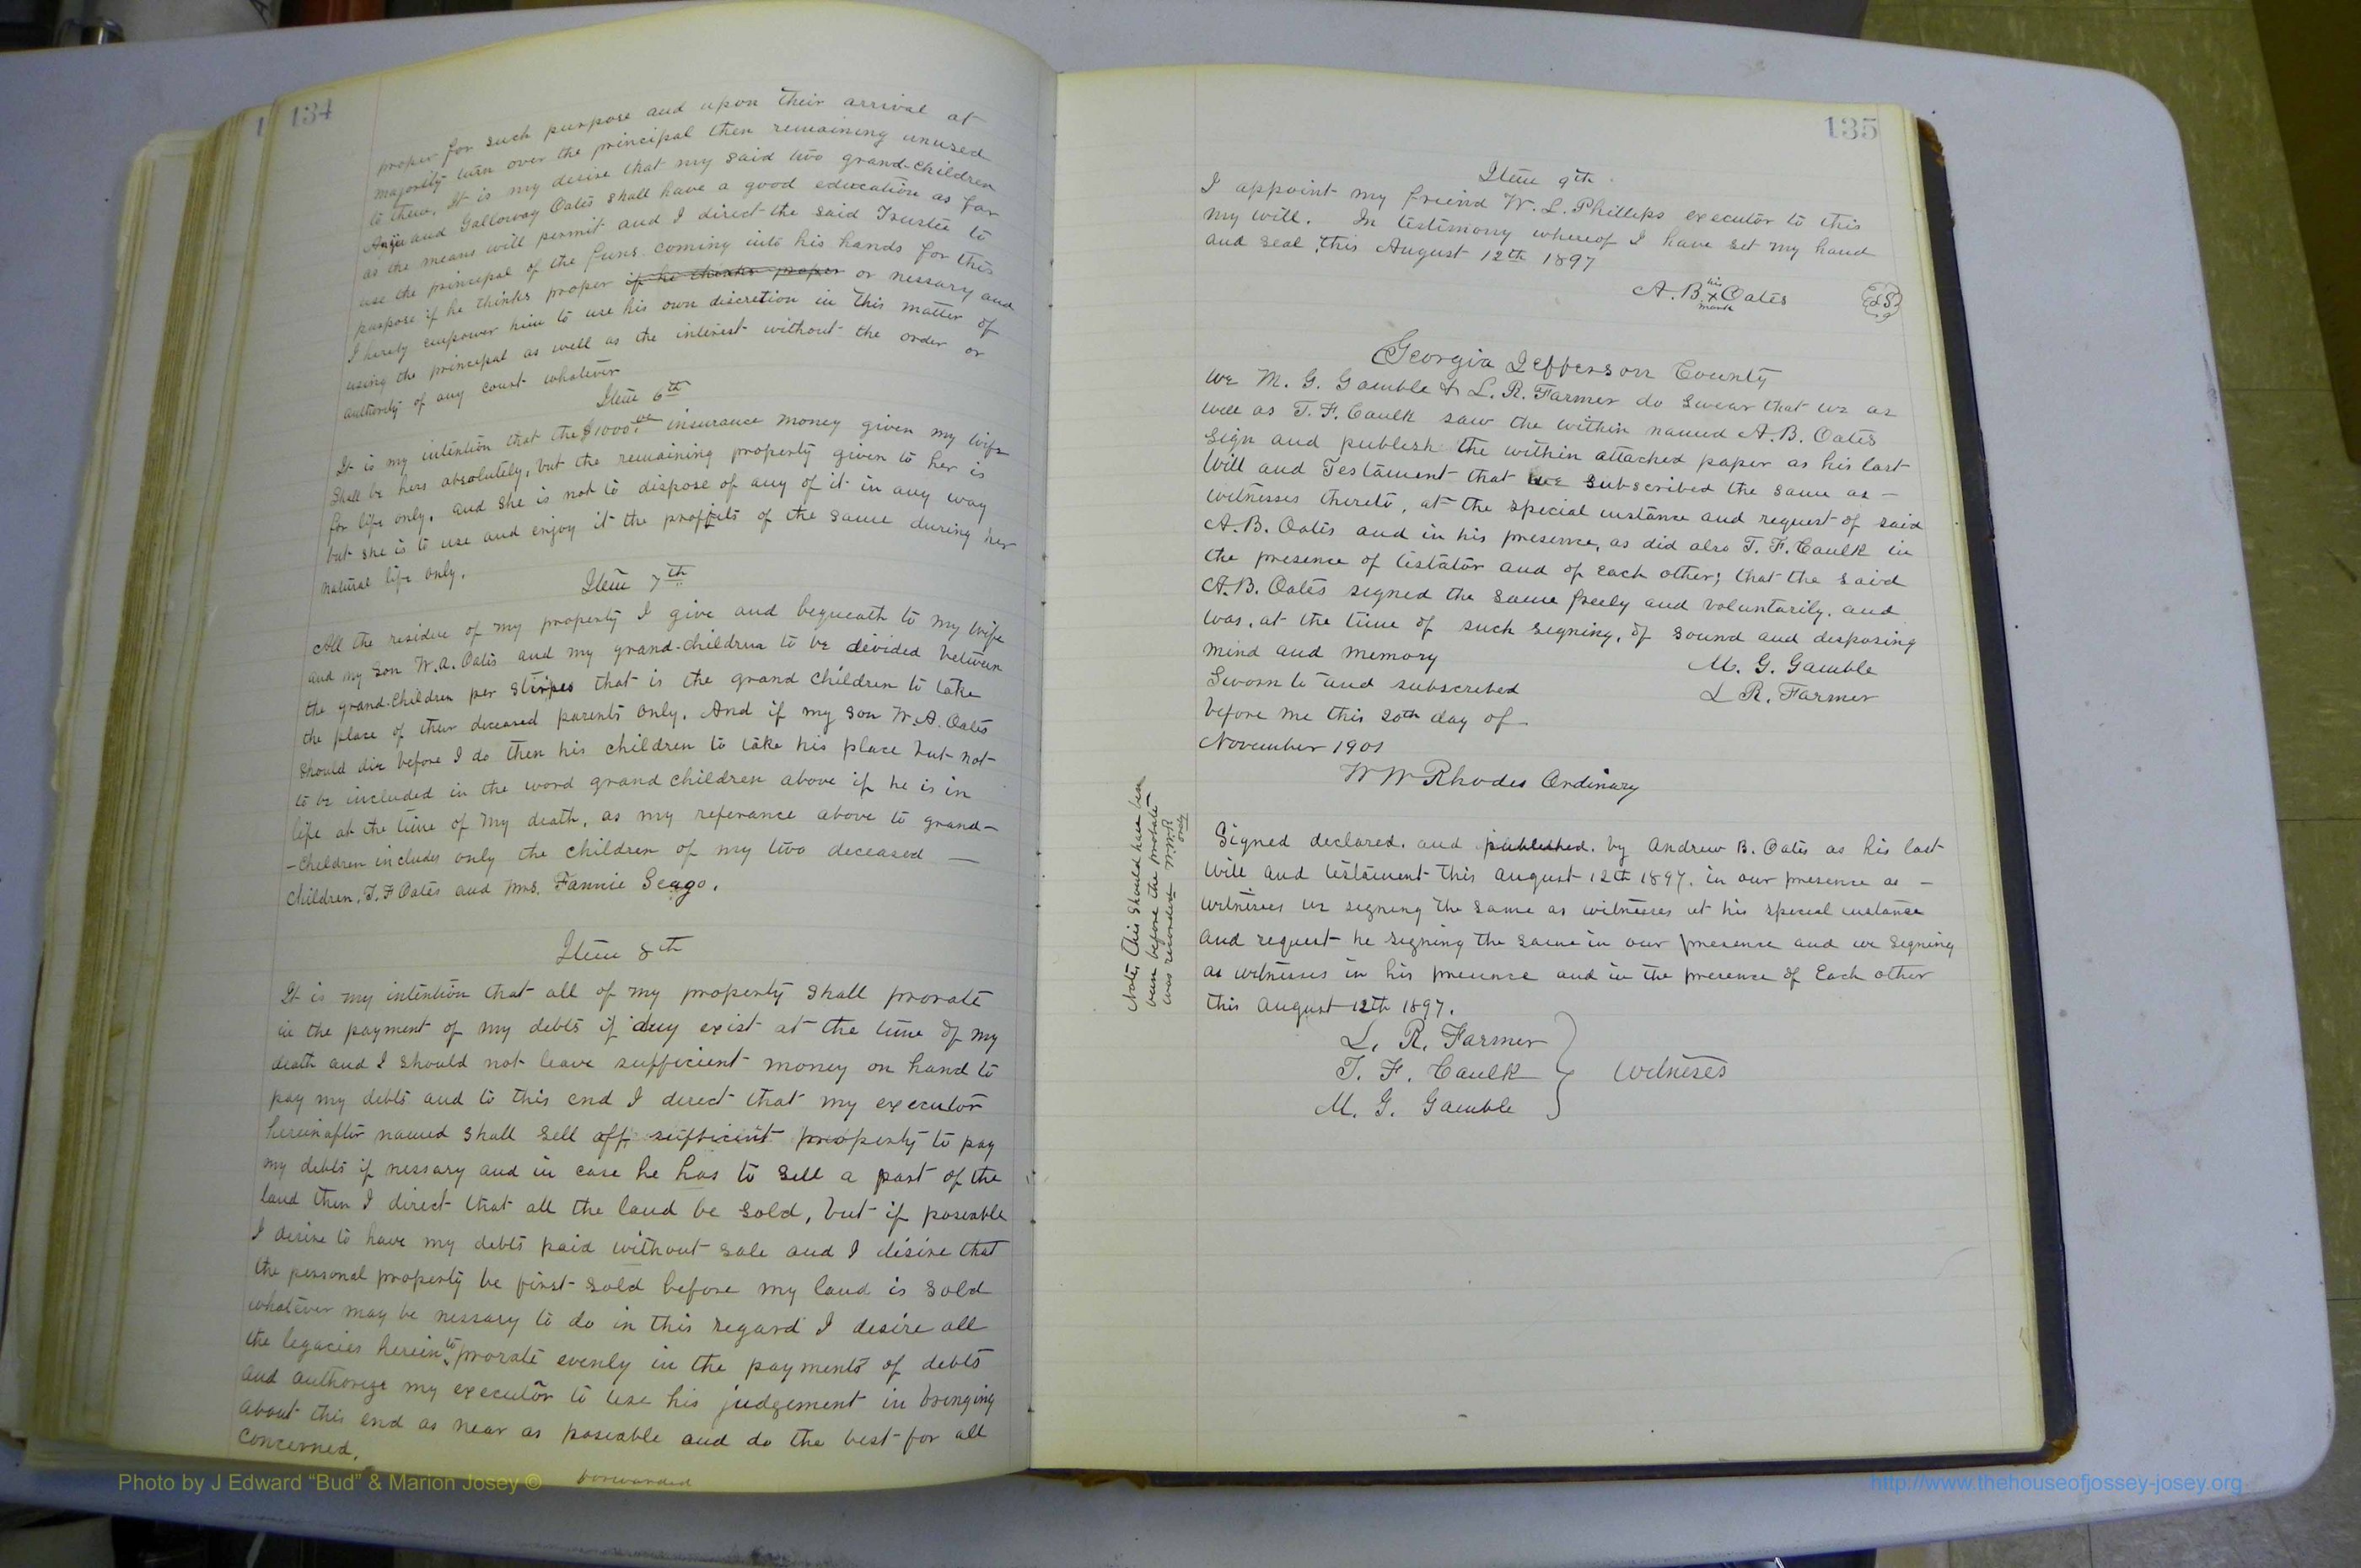 134
proper for such purpose and upon their arrival at
majority turn over the principal then remaining unused
to them. It is my desire that my said two grand-children
and Galloway Oates shall have a good education as far
as the means will permit and I direct the said Trustee to
use the principal of the funs coming into his hands for this
purpose if he thinks proper if he thinks proper or nessary and
I hereby empower him to use his own discretion in this matter of
using the principal as well as the interest without the order or
authority of any court whatever
Item 6th
It is my intention that the $1000.00 insurance money given my wife
shall be hers absolutely, but the remaining property given to her is
for life only, and she is not to dispose of any of it in any way
but she is to use and enjoy it the proffits of the same during her
natural life only.
Item 7th
All the residue of my property I give and bequeath to my wife
and my son W.A. Oates and my grand-children to be divided between
the grand-children per stirpes that is the grand children to take
the place of their deceased parents only. And if my son W.A. Oates
should die before I do then his children to take his place but not
to be included in the word grand children above if he is in
life at the time of my death, as my referance above to grand-
-children includes only the children of my two deceased —
children, T.F Oates and Mrs. Fannie Seago.
Item 8th
It is my intention that all of my property shall prorate
in the payment of my debts if any exist at the time of my
death and I should not leave sufficient money on hand to
pay my debts and to this end I direct that my executor
hereinafter named shall sell off sufficient property to pay
my debts if nessary and in case he has to sell a part of the
land then I direct that all the land be sold, but if poseable
I desire to have my debts paid without sale and I desire that
the personal property be first sold before my land is sold
whatever may be nessary to do in this regard I desire all
the legacies herein to prorate evenly in the payments of debts
and authorize my executor to use his judgement in bringing
about this end as near as poseable and do the best for all
concerned.
forwarded
135
Item 9th
I appoint my friend W. L. Phillips executor to this
my will. In testimony whereof I have set my hand
and seal, this August 12th 1897
A. B. his X mark Oates LS
Georgia Jefferson County
We M. G. Gamble & L. R. Farmer do swear that we as
well as T. F. Caulk saw the within named A. B. Oates
sign and publish the within attached paper as his last
Will and Testament that we subscribed the same as —
witnesses thereto, at the special instance and request of said
A. B. Oates and in his presence, as did also T. F. Caulk in
the presence of testator and of each other; that the said
A. B. Oates signed the same freely and voluntarily. and
was, at the time of such signing, of sound and disposing
mind and memory
M. G. Gamble
Sworn to and subscribed
L R. Farmer
before me this 20th day of
November 1901
W W Rhodes Ordinary
Note, This should have been
been before the probate
was recorded W.W.R
ordy
Signed declared. and published. by Andrew B. Oates as his last
will and testament this August 12th 1897. in our presence as —
witnesses we signing the same as witnesses at his special instance
and request he signing the same in our presence and we signing
as witnesses in his presence and in the presence of Each other
this August 12th 1897.
L. R. Farmer
T. F. Caulk
Witneses
M. G. Gamble
Photo by J Edward “Bud” & Marion Josey ©
http://www.thehouseofjossey-josey.org